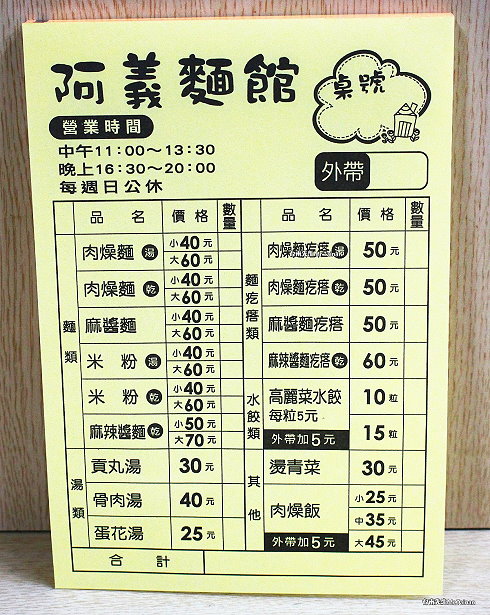 阿義麵館
桌號
營業時間
中午11:00～13:30
晚上16:30～20:00
每週日公休
外帶
品名 價格 數量
麵類
肉燥麵 湯 小40元 大60元
肉燥麵 乾 小40元 大60元
麻醬麵 小40元 大60元
米粉 湯 小40元 大60元
米粉 乾 小40元 大60元
麻辣醬麵 乾 小50元 大70元
湯類
貢丸湯 30元
骨肉湯 40元
蛋花湯 25元
品名 價格 數量
麵疙瘩類
肉燥麵疙瘩 湯 50元
肉燥麵疙瘩 乾 50元
麻醬麵疙瘩 50元
麻辣醬麵疙瘩 乾 60元
水餃類
高麗菜水餃 10粒
每粒5元
外帶加5元 15粒
其他
燙青菜 30元
肉燥飯 小25元 中35元 大45元
外帶加5元
合計